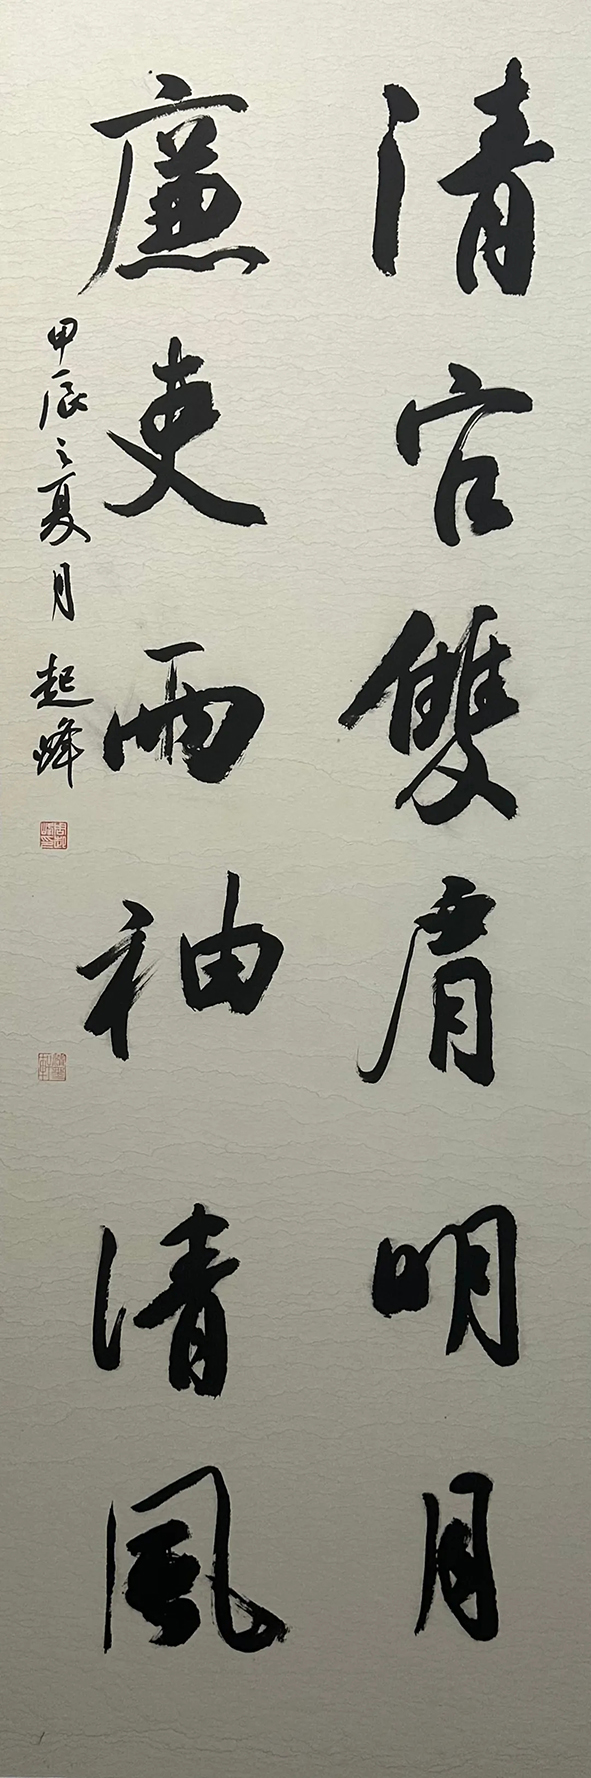 清官雙肩明月
廉吏兩袖清風
甲辰之夏月 起峰